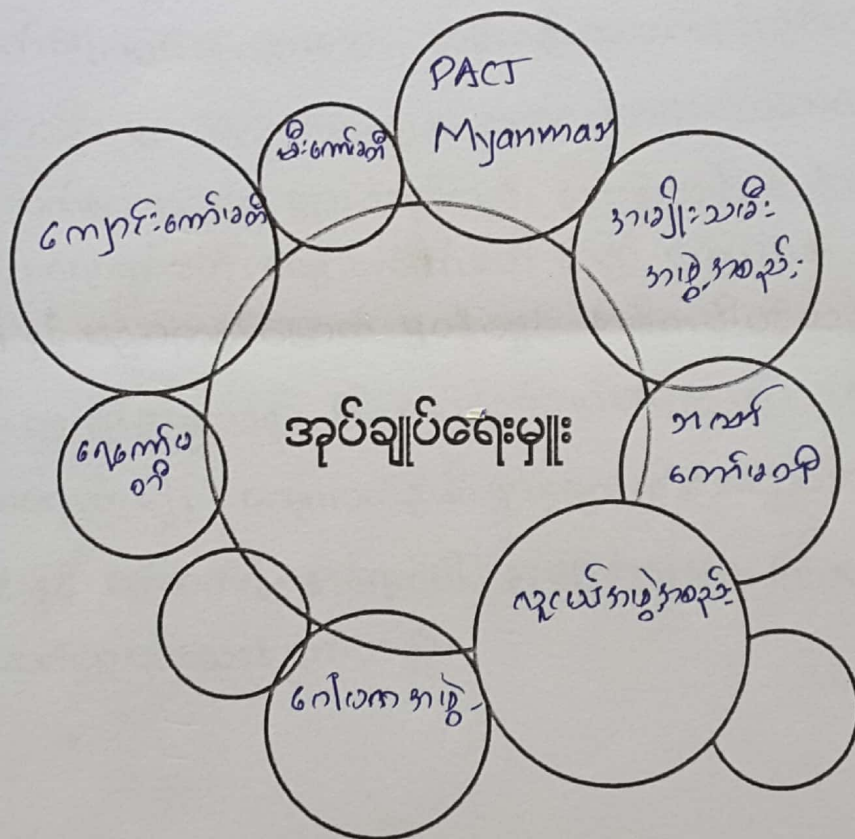 PACT
Myanmar
မီးကော်မတီ
ကျောင်းကော်မတီ
အမျိုးသမီး
အဖွဲ့အစည်း
အုပ်ချုပ်ရေးမှူး
ရေကော်မ
တီ
ဘဏ်
ကော်မတီ
လူငယ်အဖွဲ့အစည်း
ဂေါပကအဖွဲ့